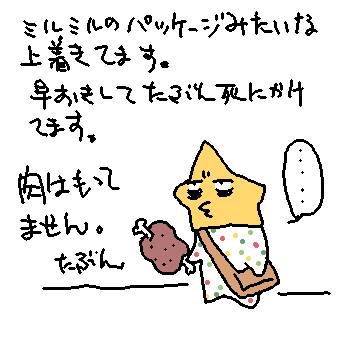 ミルミルのパッケージみたいな
上着きてます。
早おきしてたぶん死にかけ
てます。
肉はもいて
ません。
たぶん
……